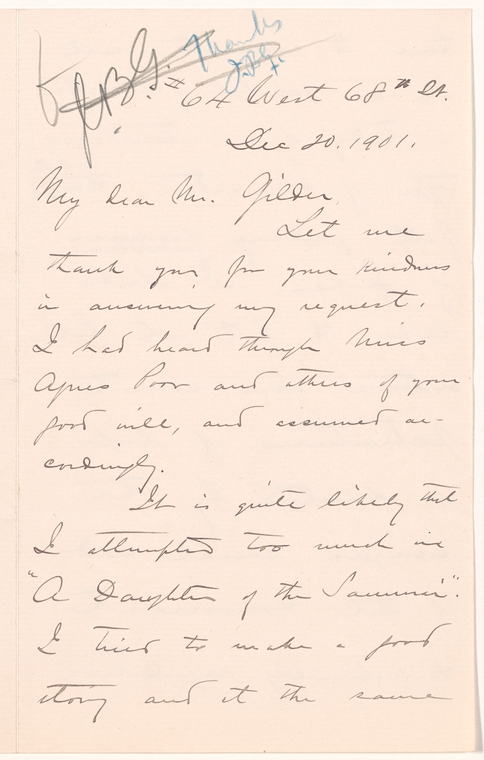 J.B.G.
Thanks
J.B.G.
# 64 West 68th St.
Dec 20. 1901.
My dear Mr. Gilder,
Let me
thank you for your kindness
in answering my request.
I had heard through Miss
Agnes Poor and others of your
good will, and assumed ac-
cordingly.
It is quite likely that
I attempted too much in
"A Daughter of the Samurai".
I tried to make a good
story and at the same